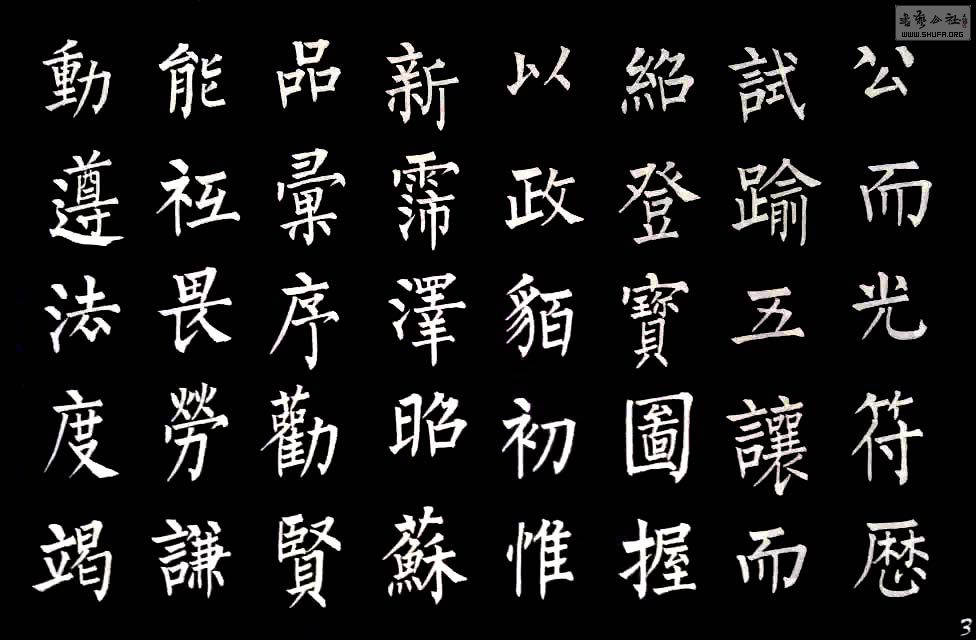 公而光符歷
試踰五讓而
紹登寶圖握
以政貊初惟
新霈澤昭蘇
品彙序勸賢
能祗畏勞謙
動遵法度竭
书艺公社
WWW.SHUFA.ORG
3